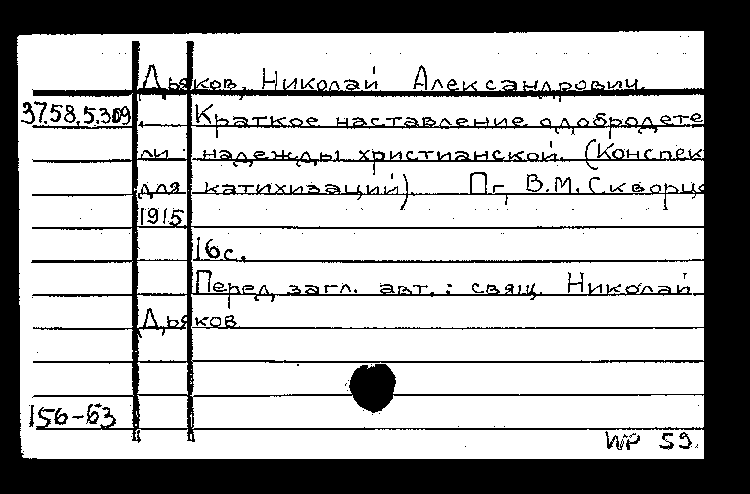 Дьяков, Николай Александрович.
37.58.5.309 Краткое наставление о добродете
ли надежды христианской. (Конспек
для катихизаций). Пг, В.М. Скворцо
1915
16с.
Перед загл. авт.: свящ. Николай
Дьяков
156-63
WP 59.